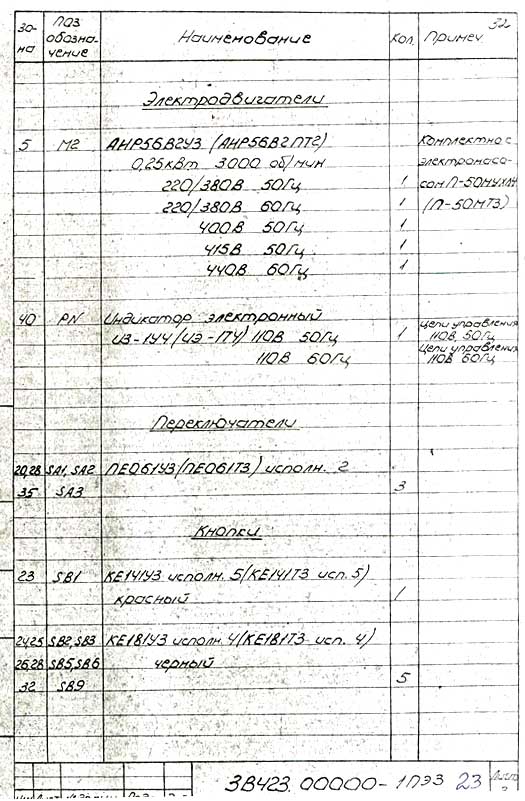 32
Зо-на Поз обозна-чение Наименование Кол. Примеч.
Электродвигатели
5 М2 АИР56В2У3 (АИР56В2ПТ2) Комплектно с
0,25кВт 3000 об/мин электронасо-
220/380В 50Гц 1 сом П-50МУХЛ4
220/380В 60Гц 1 (П-50МТ3)
400В 50Гц 1
415В 50Гц 1
440В 60Гц 1
40 PN Индикатор электронный Цепи управления
ИЭ-1У4 (ИЭ-1Т4) 110В 50Гц 1 110В, 50Гц
110В 60Гц Цепи управления 110В 60Гц
Переключатели
20,28 SA1, SA2 ПЕ061У3 (ПЕ061Т3) исполн. 2
35 SA3 3
Кнопки
23 SB1 КЕ141У3 исполн. 5 (КЕ141Т3 исп. 5)
красный 1
24,25 SB2, SB3 КЕ181У3 исполн. 4 (КЕ181Т3 исп. 4)
26,28 SB5, SB6 черный
32 SB9 5
3В423.00000-1ПЭ3 23